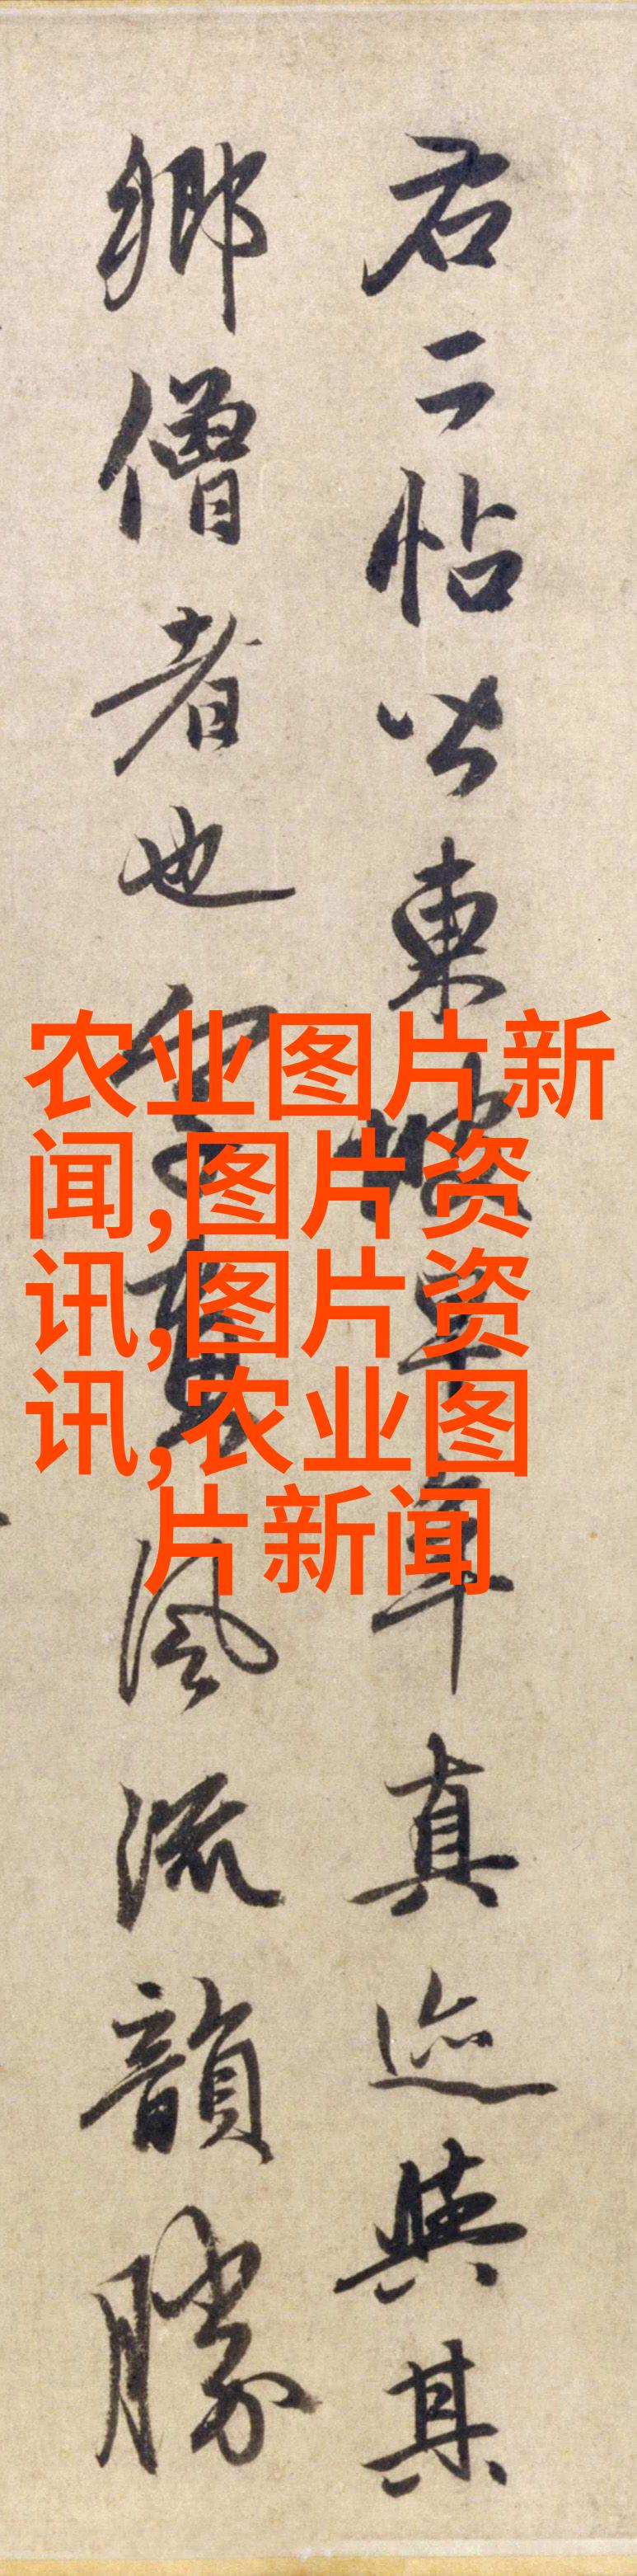 右二帖皆東坡早年真迹與其
鄉僧者也字畫風流韻勝
农业图片新
闻,图片资
讯,图片资
讯,农业图
片新闻